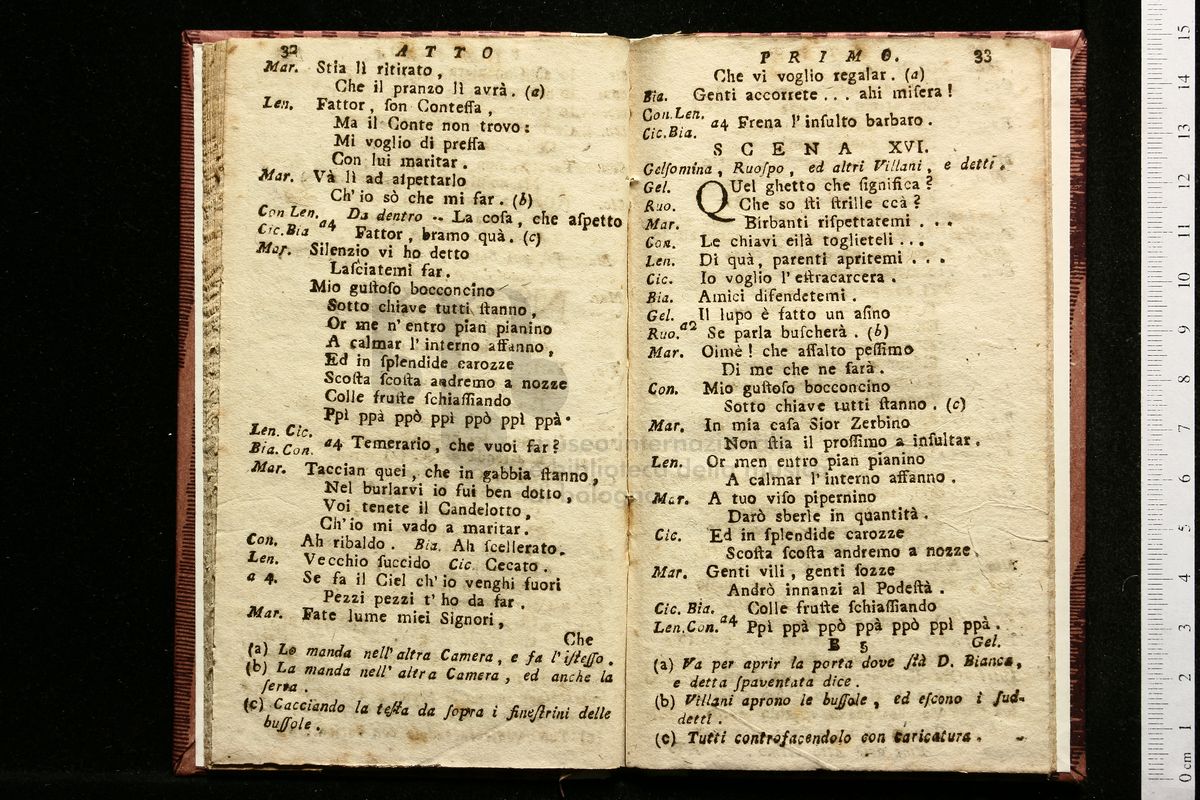 32 ATTO
Mar. Stia lì ritirato,
Che il pranzo lì avrà. (a)
Len. Fattor, ſon Conteſſa,
Ma il Conte non trovo:
Mi voglio di preſſa
Con lui maritar.
Mar. Và lì ad aſpettarlo
Ch' io sò che mi far. (b)
Con Len. a4 Da dentro -- La coſa, che aſpetto
Cic. Bia Fattor, bramo quà. (c)
Mar. Silenzio vi ho detto
Laſciatemi far.
Mio guſtoſo bocconcino
Sotto chiave tutti ſtanno,
Or me n' entro pian pianino
A calmar l' interno affanno,
Ed in ſplendide carozze
Scoſta ſcoſta andremo a nozze
Colle fruſte ſchiaſſiando
Ppì ppà ppò ppì ppò ppì ppà.
Len. Cic.
Bia. Con. a4 Temerario, che vuoi far?
Mar. Taccian quei, che in gabbia ſtanno,
Nel burlarvi io fui ben dotto,
Voi tenete il Candelotto,
Ch' io mi vado a maritar.
Con. Ah ribaldo. Bia. Ah ſcellerato.
Len. Vecchio ſuccido Cic. Cecato.
a 4. Se fa il Ciel ch' io venghi fuori
Pezzi pezzi t' ho da far.
Mar. Fate lume miei Signori,
Che
(a) Lo manda nell' altra Camera, e fa l' iſteſſo.
(b) La manda nell' altra Camera, ed anche la
ſerra.
(c) Cacciando la teſta da ſopra i fineſtrini delle
buſſole.
PRIMO. 33
Che vi voglio regalar. (a)
Bia. Genti accorrete... ahi miſera!
Con. Len.
Cic. Bia. a4 Frena l' inſulto barbaro.
SCENA XVI.
Gelſomina, Ruoſpo, ed altri Villani, e detti.
Gel. QUel ghetto che ſignifica?
Ruo. Che so ſti ſtrille ccà?
Mar. Birbanti riſpettatemi...
Con. Le chiavi eilà toglieteli...
Len. Di quà, parenti apritemi...
Cic. Io voglio l' eſtracarcera.
Bia. Amici difendetemi.
Gel. Il lupo è fatto un aſino
Ruo. a2 Se parla buſcherà. (b)
Mar. Oimè! che aſſalto peſſimo
Di me che ne ſarà.
Con. Mio guſtoſo bocconcino
Sotto chiave tutti ſtanno. (c)
Mar. In mia caſa Sior Zerbino
Non ſtia il proſſimo a inſultar.
Len. Or men entro pian pianino
A calmar l' interno affanno.
Mar. A tuo viſo pipernino
Darò sberle in quantità.
Cic. Ed in ſplendide carozze
Scoſta ſcoſta andremo a nozze.
Mar. Genti vili, genti ſozze
Andrò innanzi al Podeſtà.
Cic. Bia. Colle fruſte ſchiaſſiando
Len. Con. a4 Ppì ppà ppò ppà ppò ppì ppà.
B 5 Gel.
(a) Va per aprir la porta dove ſtà D. Bianca,
e detta ſpaventata dice.
(b) Villani aprono le buſſole, ed eſcono i ſud-
detti.
(c) Tutti controfacendolo con caricatura.